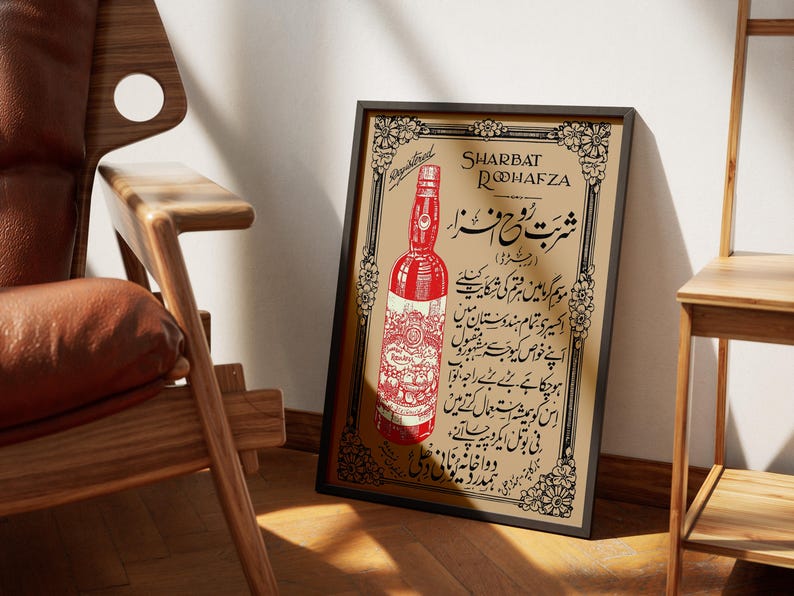 Registered
SHARBAT
ROOHAFZA
شربت روح افزاء
(رجسٹرڈ)
موسم گرما میں ہر قسم کی شکایت کیلئے
اکسیر ہی تمام ہندوستان میں
اپنے خواص کیوجہ سے مشہور و مقبول
ہوچکا ہے بڑے بڑے راجہ نواب
اس کو ہمیشہ استعمال کرتے ہیں
فی بوتل ایکروپیہ چار آنے
ہمدرد دواخانہ یونانی دھلی